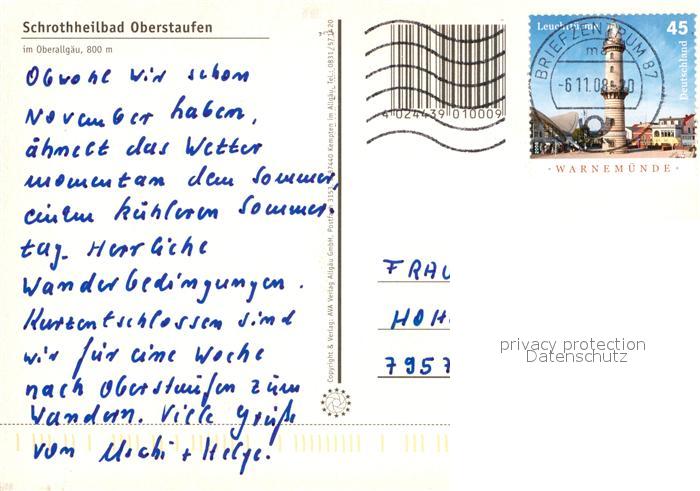 Schrothheilbad Oberstaufen
im Oberallgäu, 800 m
Obwohl wir schon
November haben,
ähnelt das Wetter
momentan dem Sommer,
einem kühleren Sommer-
tag. Herrliche
Wanderbedingungen.
Kurzentschlossen sind
wir für eine Woche
nach Oberstaufen zum
Wandern. Viele Grüße
von Uschi + Helge.
Copyright & Verlag: AVA Verlag Allgäu GmbH, Postfach 3153, 87440 Kempten im Allgäu, Tel.: 0831/57
4 024439 010009
Leuchttürme
45
Deutschland
BRIEFZENTRUM 87
-6.11.08
WARNEMÜNDE
FRAU
HOH
7957
privacy protection
Datenschutz